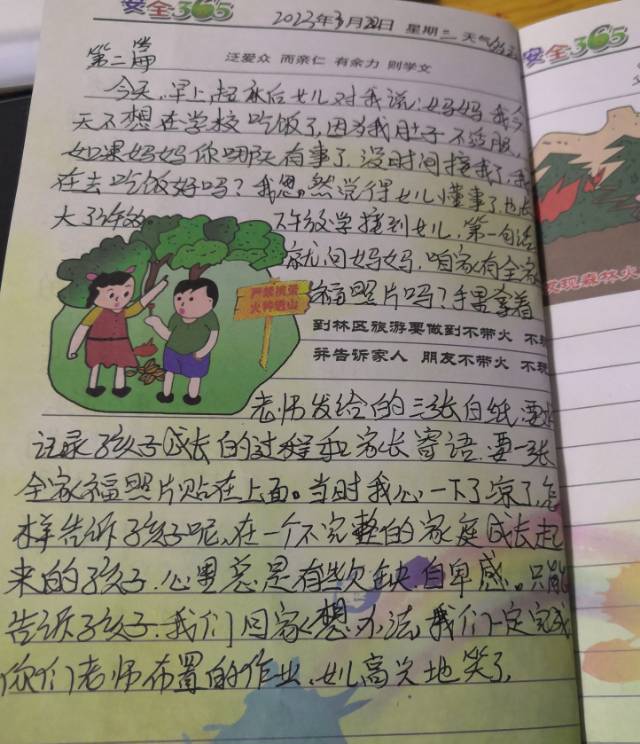 安全365
2023年3月22日 星期三 天气
安全365
第二篇
泛爱众 而亲仁 有余力 则学文
今天,早上起床后女儿对我说:妈妈我今
天不想在学校吃饭了,因为我肚子不舒服,
如果妈妈你哪天有事了,没时间接我了,我
在去吃饭好吗?我忽然觉得女儿懂事了,也长
大了许多 下午放学接到女儿,第一句话
就问妈妈,咱家有全家
福照片吗?手里拿着
严禁携带
火种进山
发现森林火
到林区旅游要做到不带火 不玩
并告诉家人 朋友不带火 不玩
老师发给的三张白纸,要求
记录孩子成长的过程和家长寄语,要一张
全家福照片贴在上面。当时我心一下了凉了,怎
样告诉孩子呢,在一个不完整的家庭成长起
来的孩子,心里总是有些欠缺,自卑感。只能
告诉孩子,我们回家想办法,我们一定完成
你们老师布置的作业,女儿高兴地笑了,